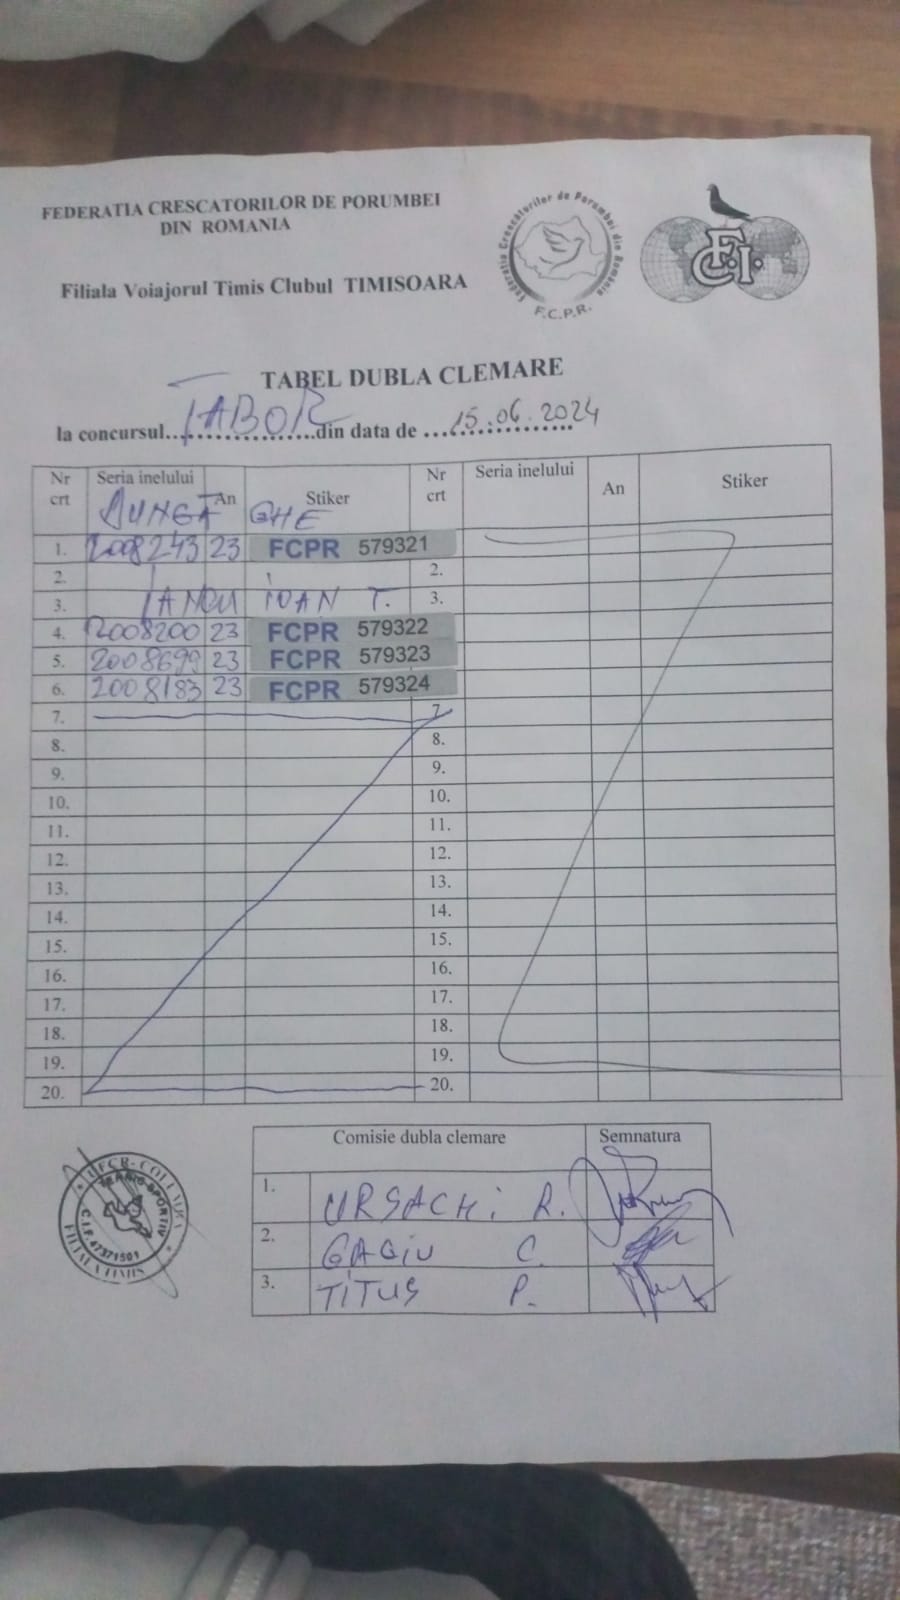 FEDERATIA CRESCATORILOR DE PORUMBEI
DIN ROMANIA
Filiala Voiajorul Timis Clubul TIMISOARA
Federatia Crescatorilor de Porumbei din Romania
F.C.P.R.
F.C.I.
TABEL DUBLA CLEMARE
la concursul..TABOR..din data de ...15.06.2024
Nr crt Seria inelului An Stiker Nr crt Seria inelului An Stiker
GHE
1. 2008243 23 FCPR 579321
2. 2.
3. IANCU IOAN T. 3.
4. 2008200 23 FCPR 579322
5. 2008699 23 FCPR 579323
6. 2008183 23 FCPR 579324
7. 7
8. 8.
9. 9.
10. 10.
11. 11.
12. 12.
13. 13.
14. 14.
15. 15.
16. 16.
17. 17.
18. 18.
19. 19.
20. 20.
Comisie dubla clemare Semnatura
1. URSACHi R.
2. GAGIU C.
3. TITUS P.
C.I.F. 47371501
FILIALA TIMIS